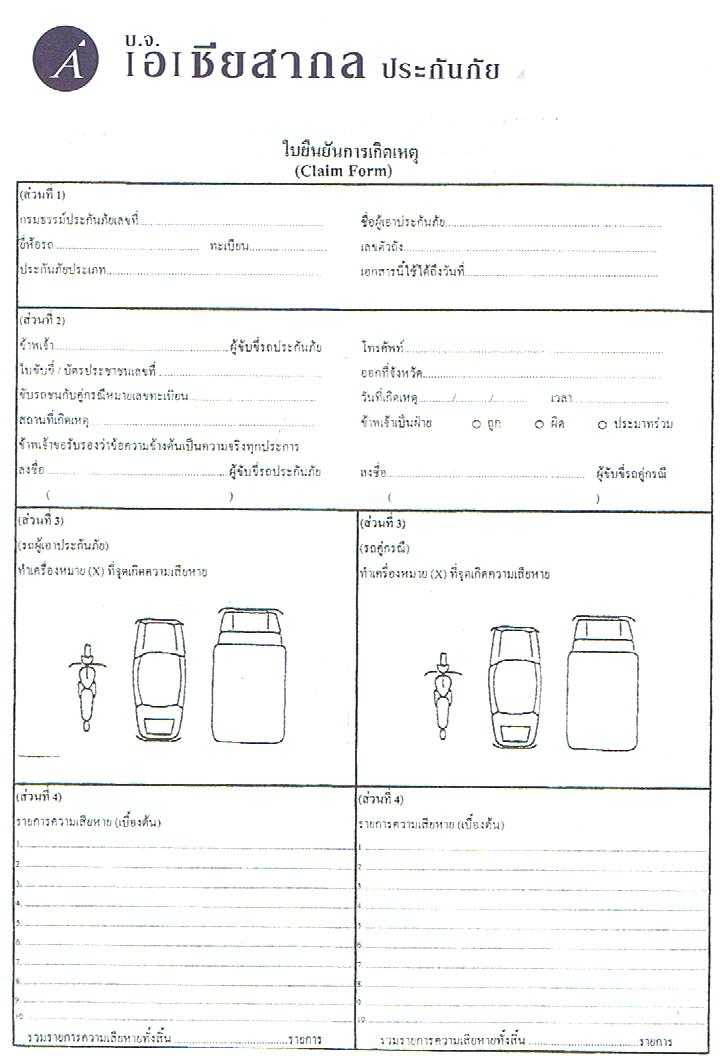 A
บ.จ.
เอเชียสากล ประกันภัย
ใบยืนยันการเกิดเหตุ
(Claim Form)
(ส่วนที่ 1)
กรมธรรม์ประกันภัยเลขที่.................... ชื่อผู้เอาประกันภัย....................
ยี่ห้อรถ .................... ทะเบียน.................... เลขตัวถัง....................
ประกันภัยประเภท.................... เอกสารนี้ใช้ได้ถึงวันที่....................
(ส่วนที่ 2)
ข้าพเจ้า....................ผู้ขับขี่รถประกันภัย โทรศัพท์....................
ใบขับขี่ / บัตรประชาชนเลขที่ .................... ออกที่จังหวัด....................
ขับรถชนกับคู่กรณีหมายเลขทะเบียน.................... วันที่เกิดเหตุ........../........../.......... เวลา....................
สถานที่เกิดเหตุ .................... ข้าพเจ้าเป็นฝ่าย ○ ถูก ○ ผิด ○ ประมาทร่วม
ข้าพเจ้าขอรับรองว่าข้อความข้างต้นเป็นความจริงทุกประการ
ลงชื่อ....................ผู้ขับขี่รถประกันภัย ลงชื่อ.................... ผู้ขับขี่รถคู่กรณี
( ) ( )
(ส่วนที่ 3)
(รถผู้เอาประกันภัย)
ทำเครื่องหมาย (X) ที่จุดเกิดความเสียหาย
(ส่วนที่ 3)
(รถคู่กรณี)
ทำเครื่องหมาย (X) ที่จุดเกิดความเสียหาย
(ส่วนที่ 4)
รายการความเสียหาย (เบื้องต้น)
1.
2.
3.
4.
5.
6.
7.
8.
9.
10.
รวมรายการความเสียหายทั้งสิ้น ....................รายการ
(ส่วนที่ 4)
รายการความเสียหาย (เบื้องต้น)
1.
2.
3.
4.
5.
6.
7.
8.
9.
10.
รวมรายการความเสียหายทั้งสิ้น ....................รายการ